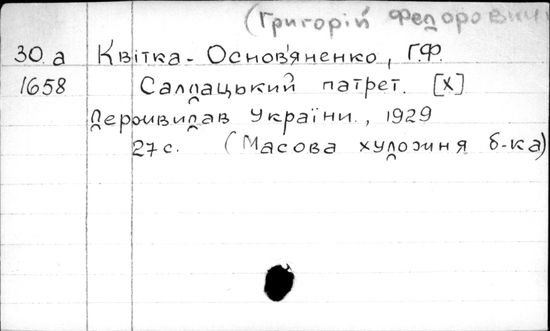 (Григорій Федорович
30.а Квітка-Основ'яненко, Г.Ф.
1658 Салдацький патрет. [X]
Держвидав України., 1929
27 с. (Масова художня б-ка)